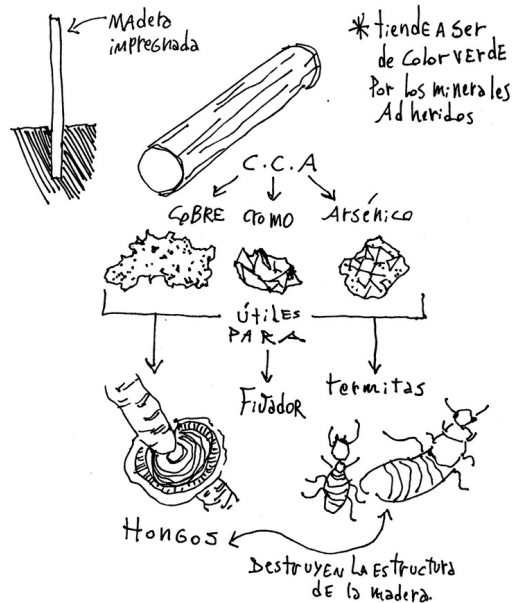 MAdera
impregnada
* tiende A Ser
de Color vErdE
Por los minerales
Adheridos
C.C.A
CoBRE cromo Arsénico
útilEs
PARA
Fijador
termitas
HonGos
DEstruyEn LA Estructura
dE la madera.